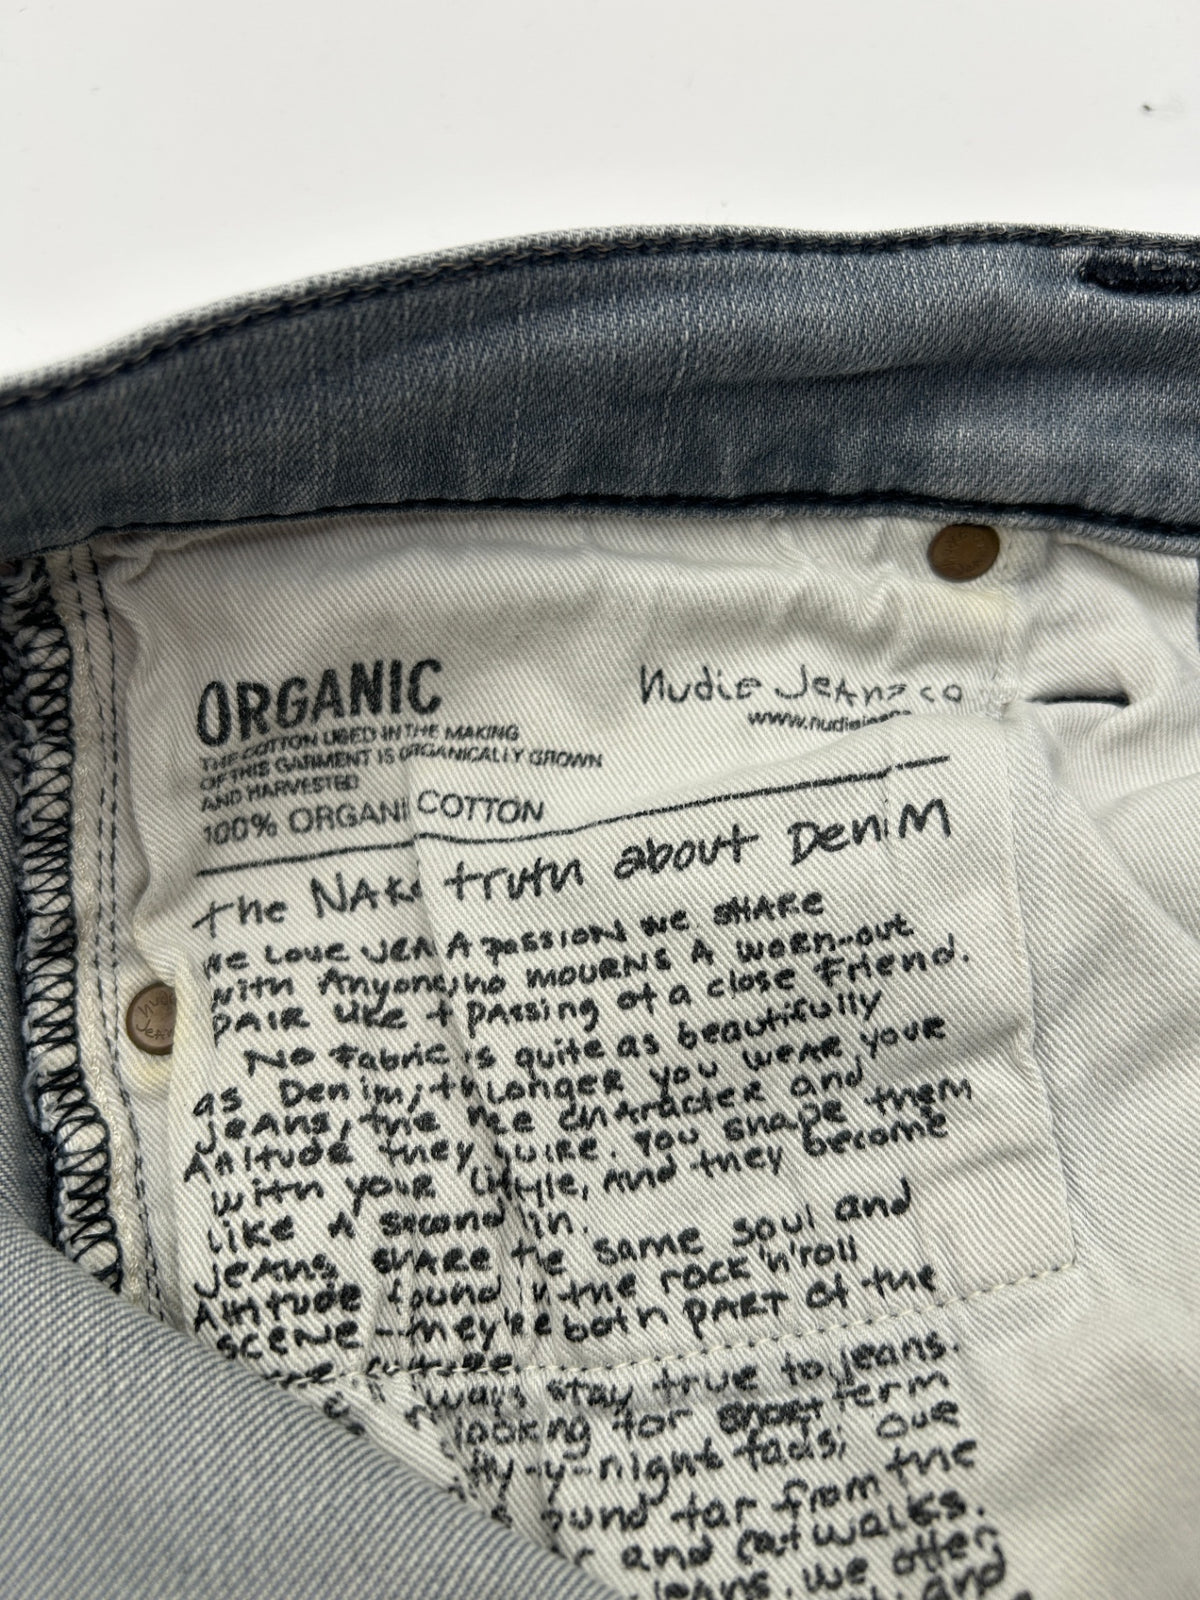 ORGANIC
THE COTTON USED IN THE MAKING
OF THIS GARMENT IS ORGANICALLY GROWN
AND HARVESTED
100% ORGANI COTTON
nudie JeAns co
www.nudiejeans
the NAKe truth about DeniM
We Love JEA A passion we SHARE
with Anyone ho MOURNS A WORN-out
PAIR like t passing of a close Friend.
No fabric is quite as beautifully
as Denim; th longer you WEAR your
JeAns, the re character and
Attitude they uire. You shape them
with your li tyle, And they become
like A second in.
JeAns SHARE the same soul and
Attitude found in the rock 'n' roll
SCENE - they're both PART of the
culture
ways stay true to jeans.
looking for short term
fly-y-night fads; our
ound far from the
r and catwalks.
jeans. We offer
and
nudie
Jeans